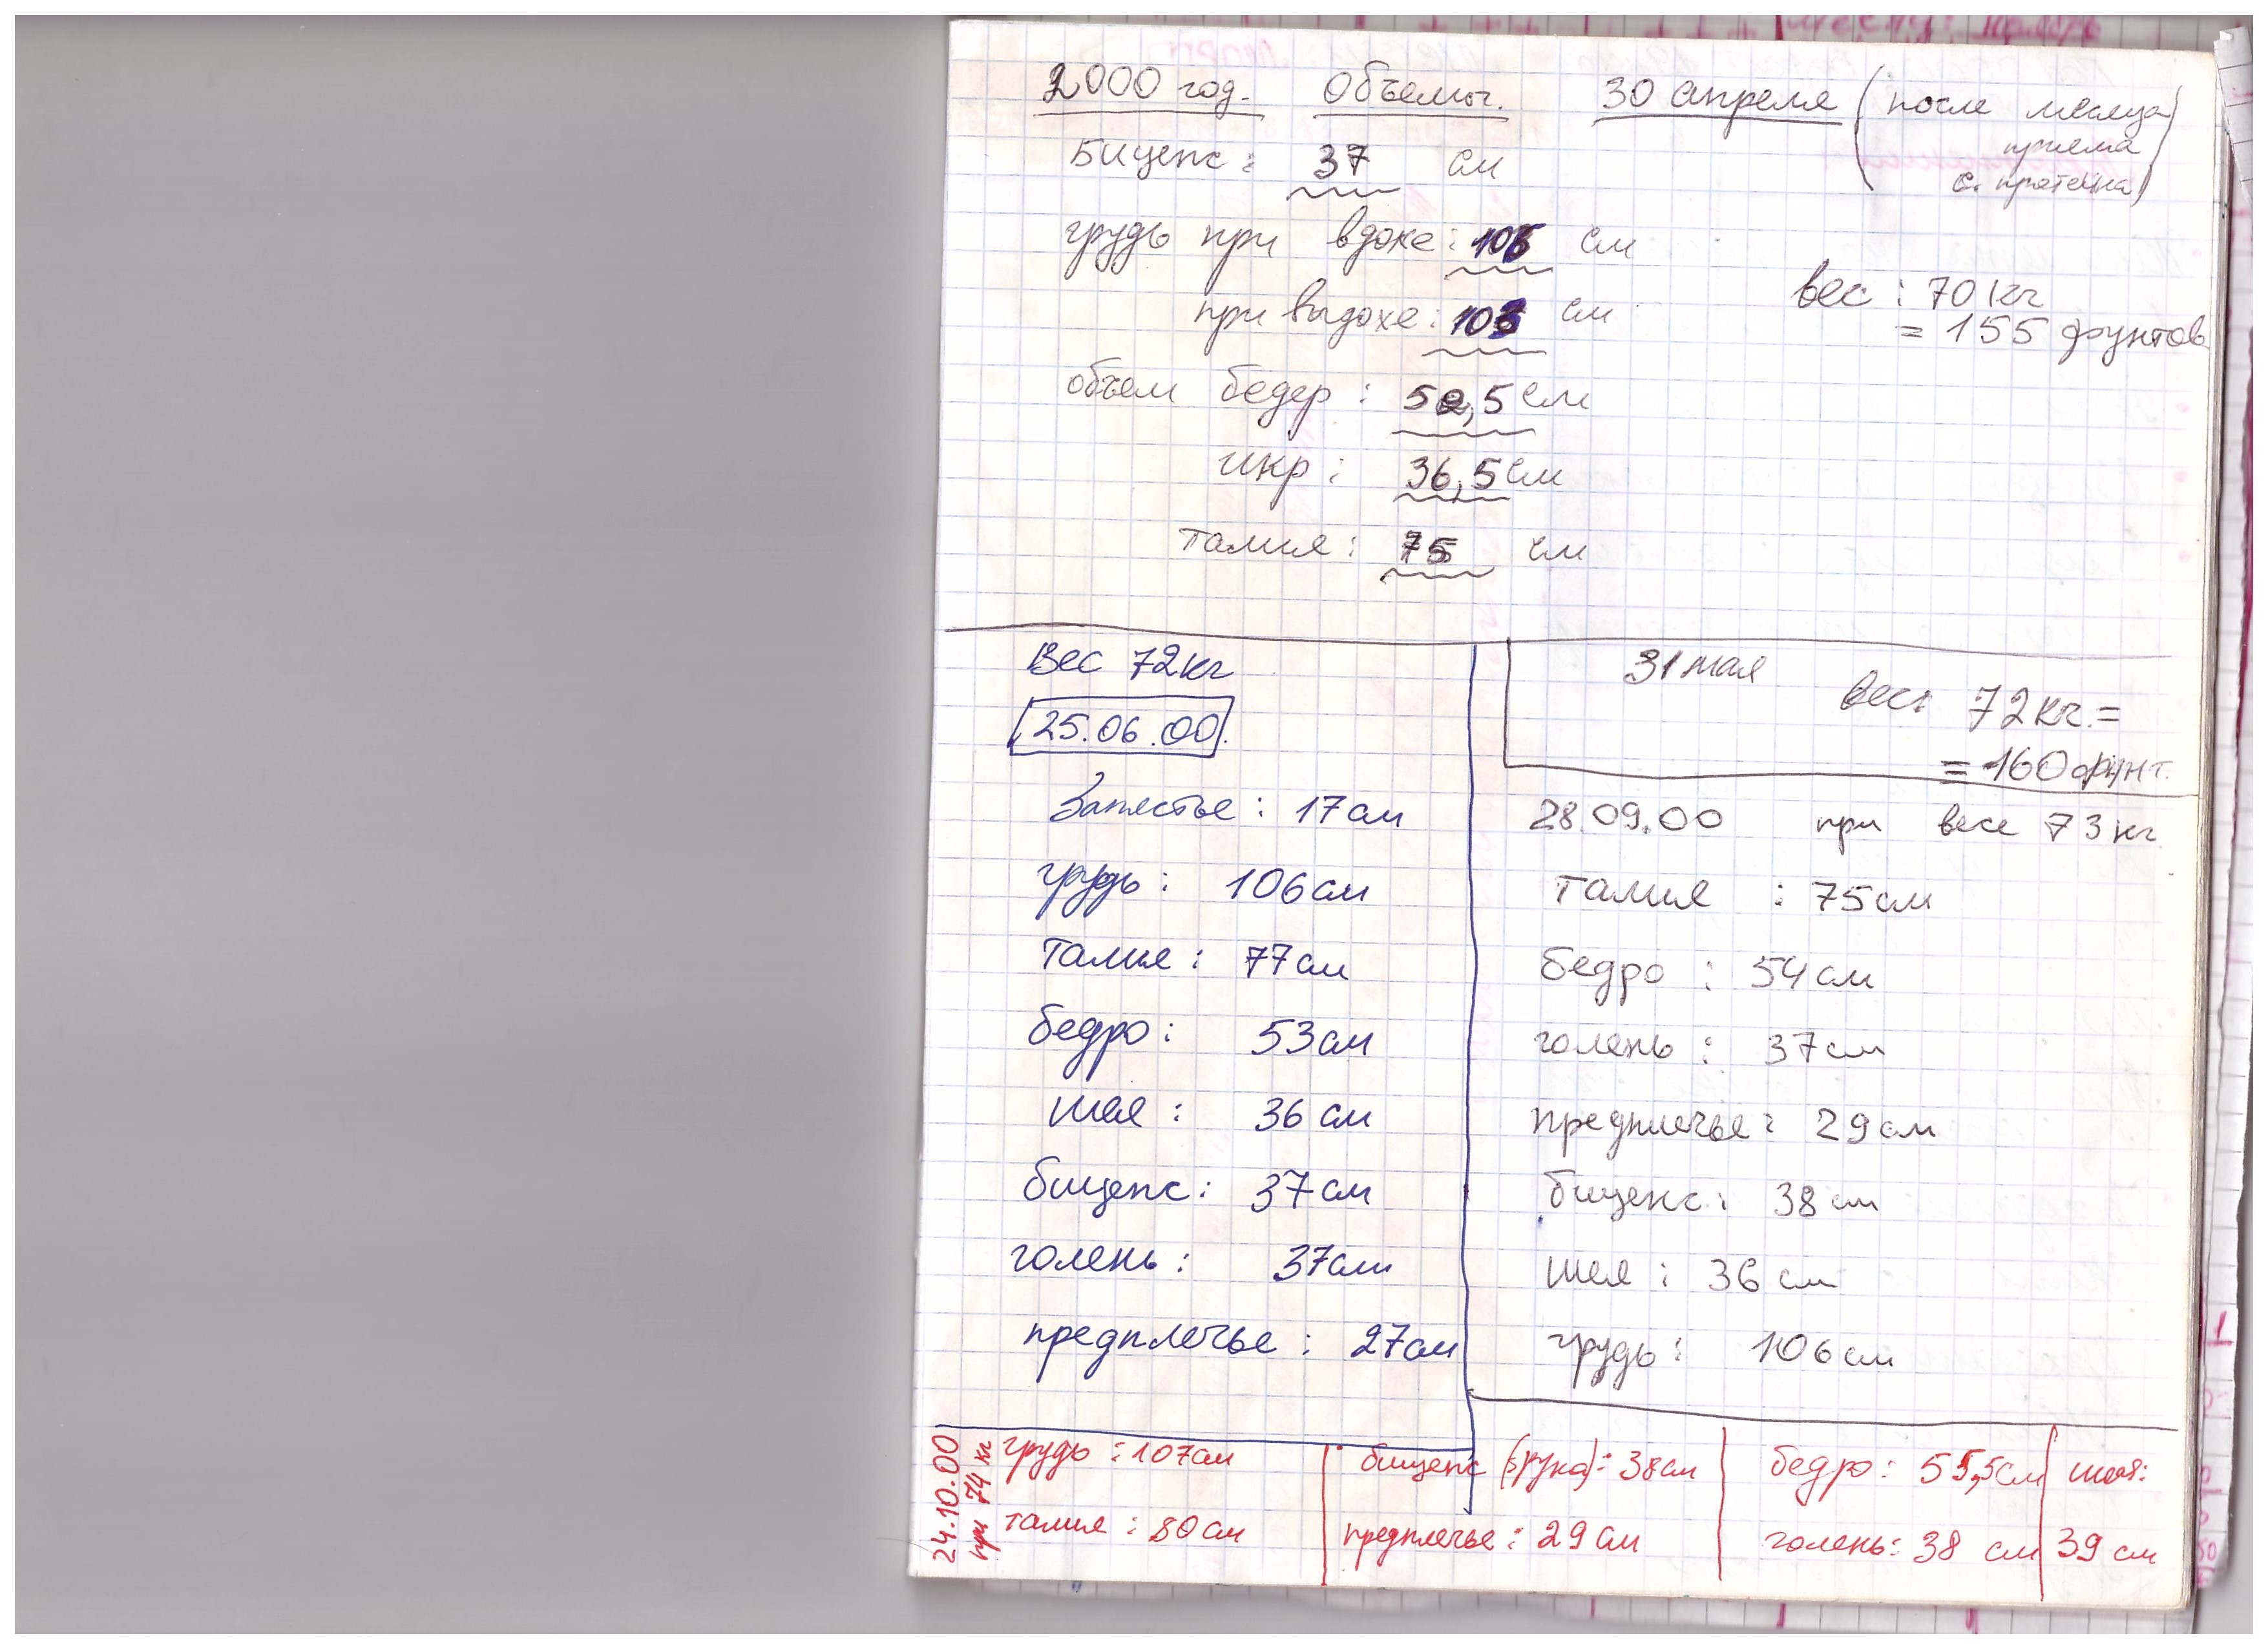 2000 год. Объемы. 30 апреля (после месяца
приема
с. протеина)
Бицепс: 37 см
грудь при вдохе: 106 см
при выдохе: 103 см
вес: 70 кг
= 155 фунтов
объем бедер: 52,5 см
икр: 36,5 см
талия: 75 см
Вес 72 кг
25.06.00.
Запястье: 17 см
грудь: 106 см
талия: 77 см
бедро: 53 см
шея: 36 см
бицепс: 37 см
голень: 37 см
предплечье: 27 см
31 мая
вес: 72 кг. =
= 160 фунт.
28.09.00 при весе 73 кг
талия: 75 см
бедро: 54 см
голень: 37 см
предплечье: 29 см
бицепс: 38 см
шея: 36 см
грудь: 106 см
24.10.00
при 74 кг
грудь: 107 см
талия: 80 см
бицепс (рука): 38 см
предплечье: 29 см
бедро: 55,5 см
голень: 38 см
шея:
39 см